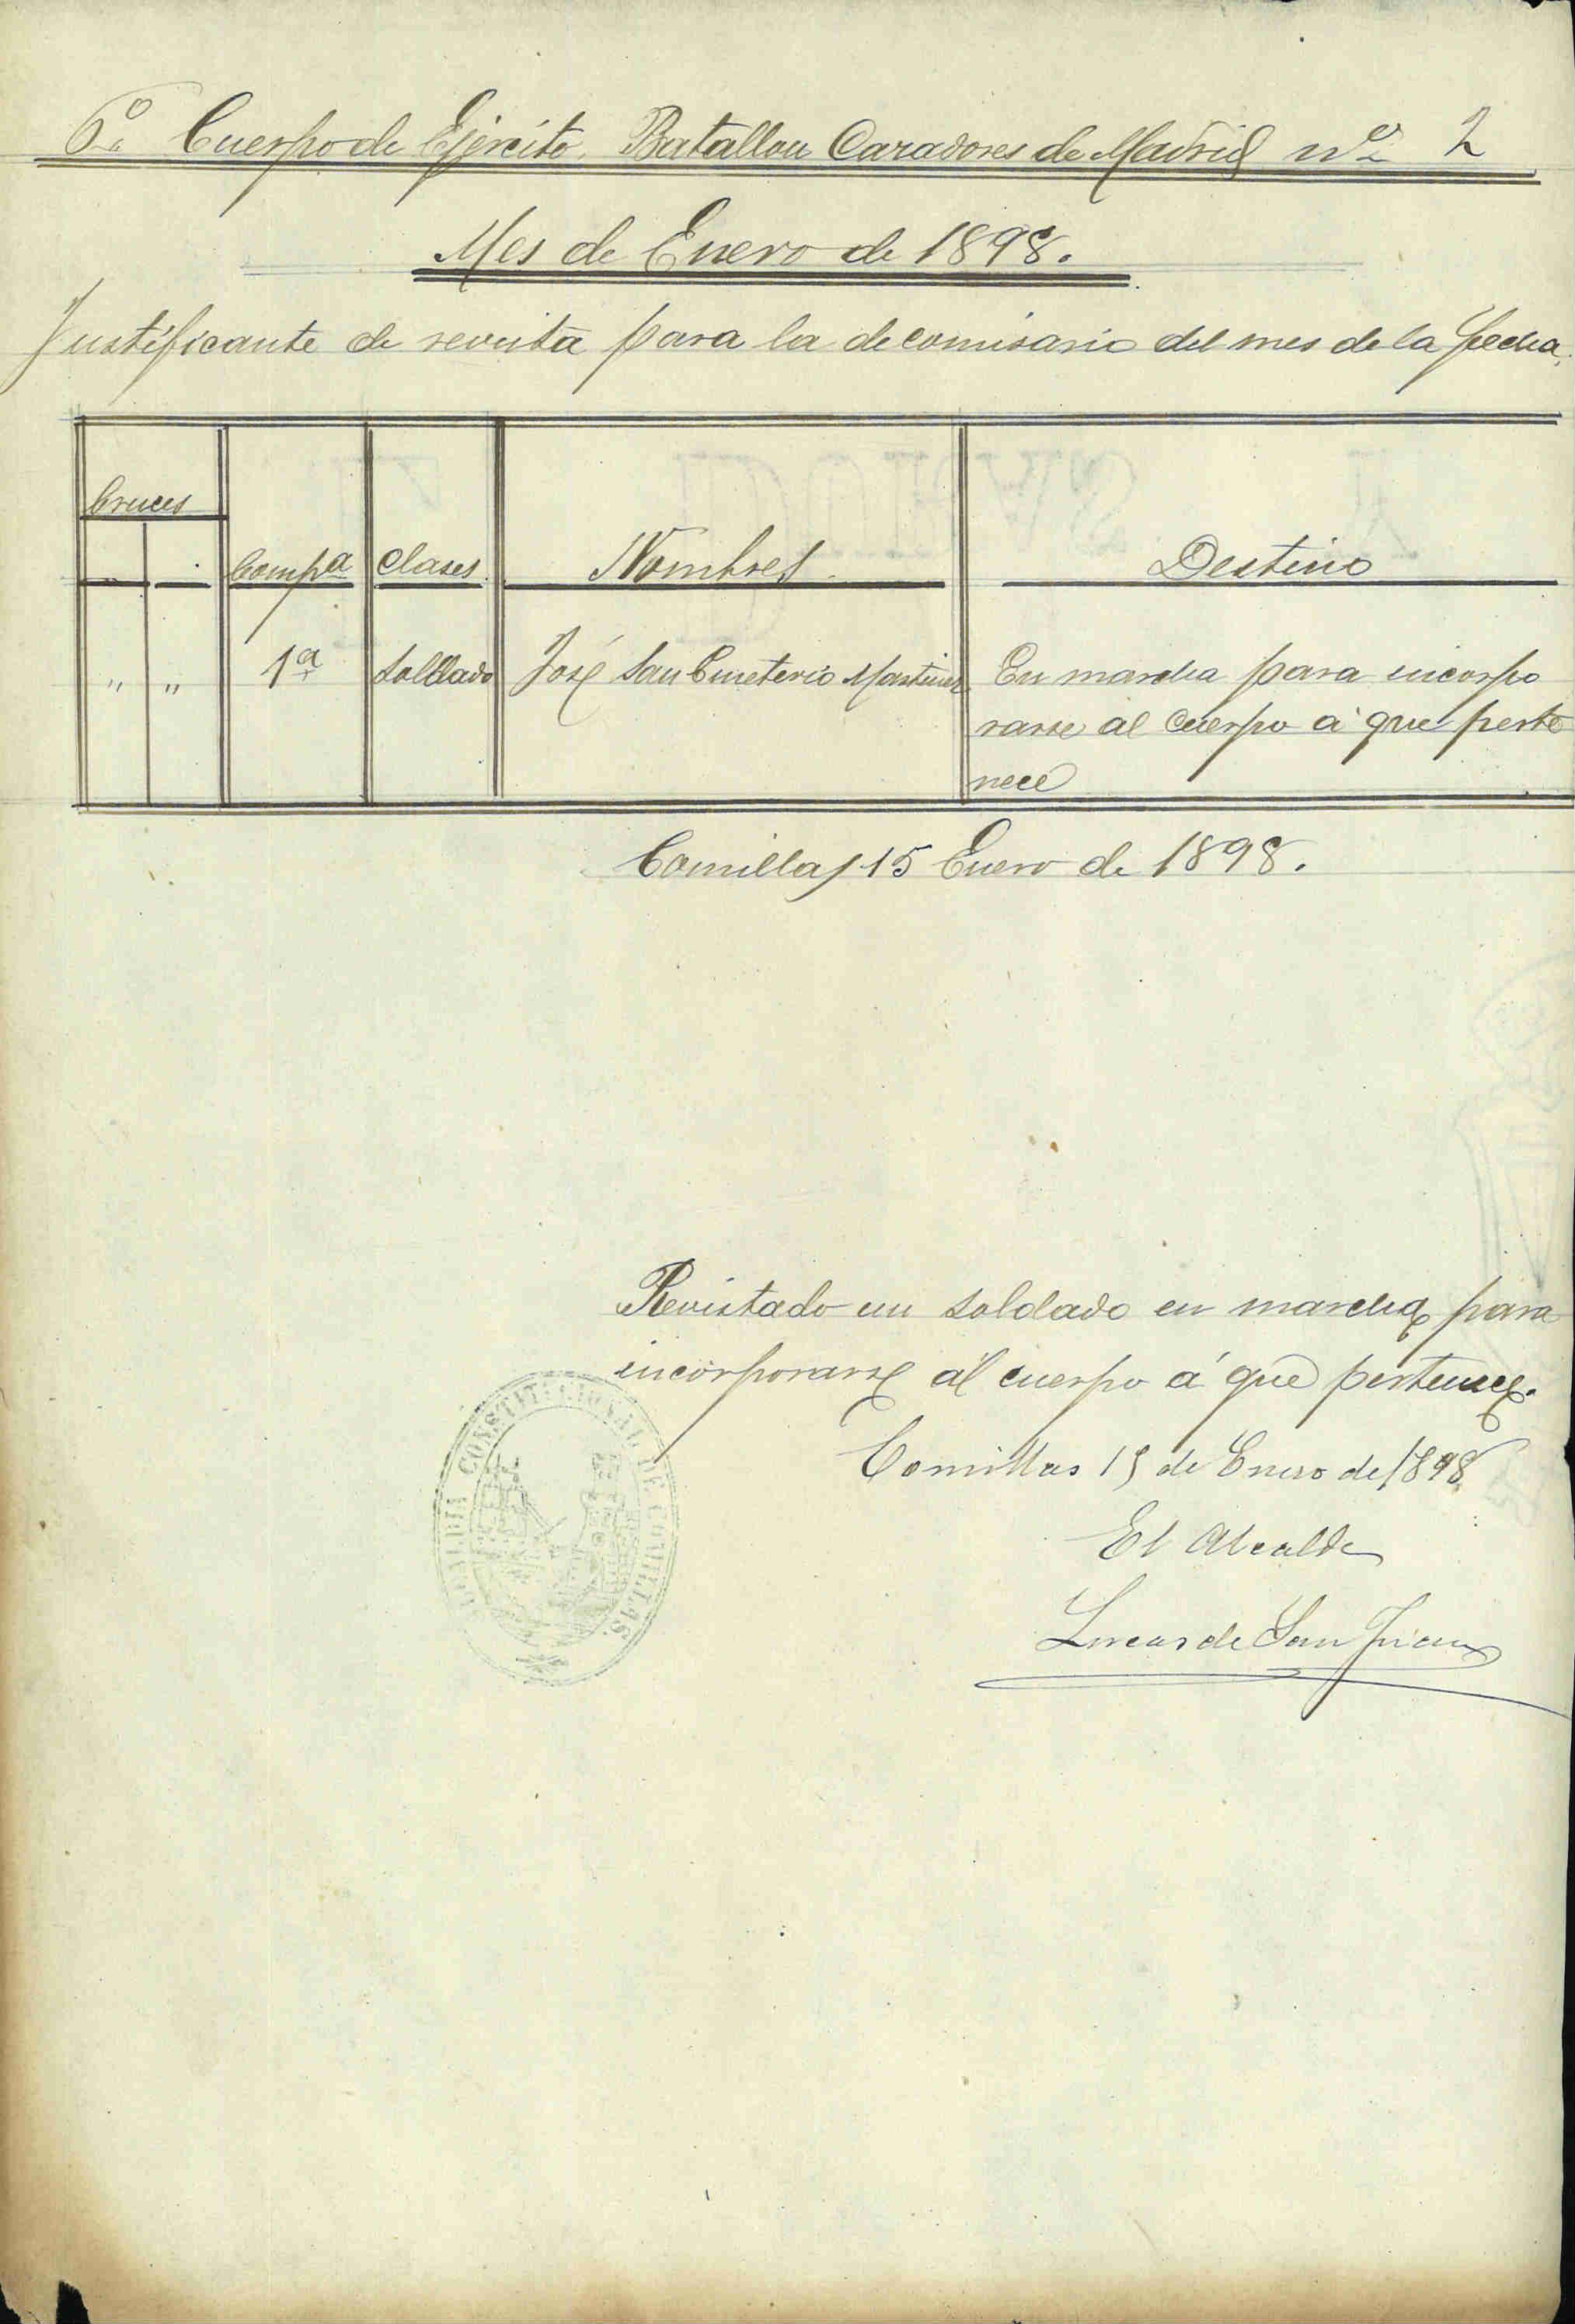 6º Cuerpo de Ejército. Batallon Cazadores de Madrid nº 2
Mes de Enero de 1898.
Justificante de revista para la de comisario del mes de la fecha.
Cruces
Compª Clases Nombres Destino
" " 1ª Soldado José San Emeterio Martinez En marcha para incorpo
rarse al cuerpo á que perte
nece
Comillas 15 Enero de 1898.
Revistado un soldado en marcha para
incorporarse al cuerpo á que pertenece.
Comillas 15 de Enero de 1898
El Alcalde
Lucas de San Juan
ALCALDIA CONSTITUCIONAL DE COMILLAS.